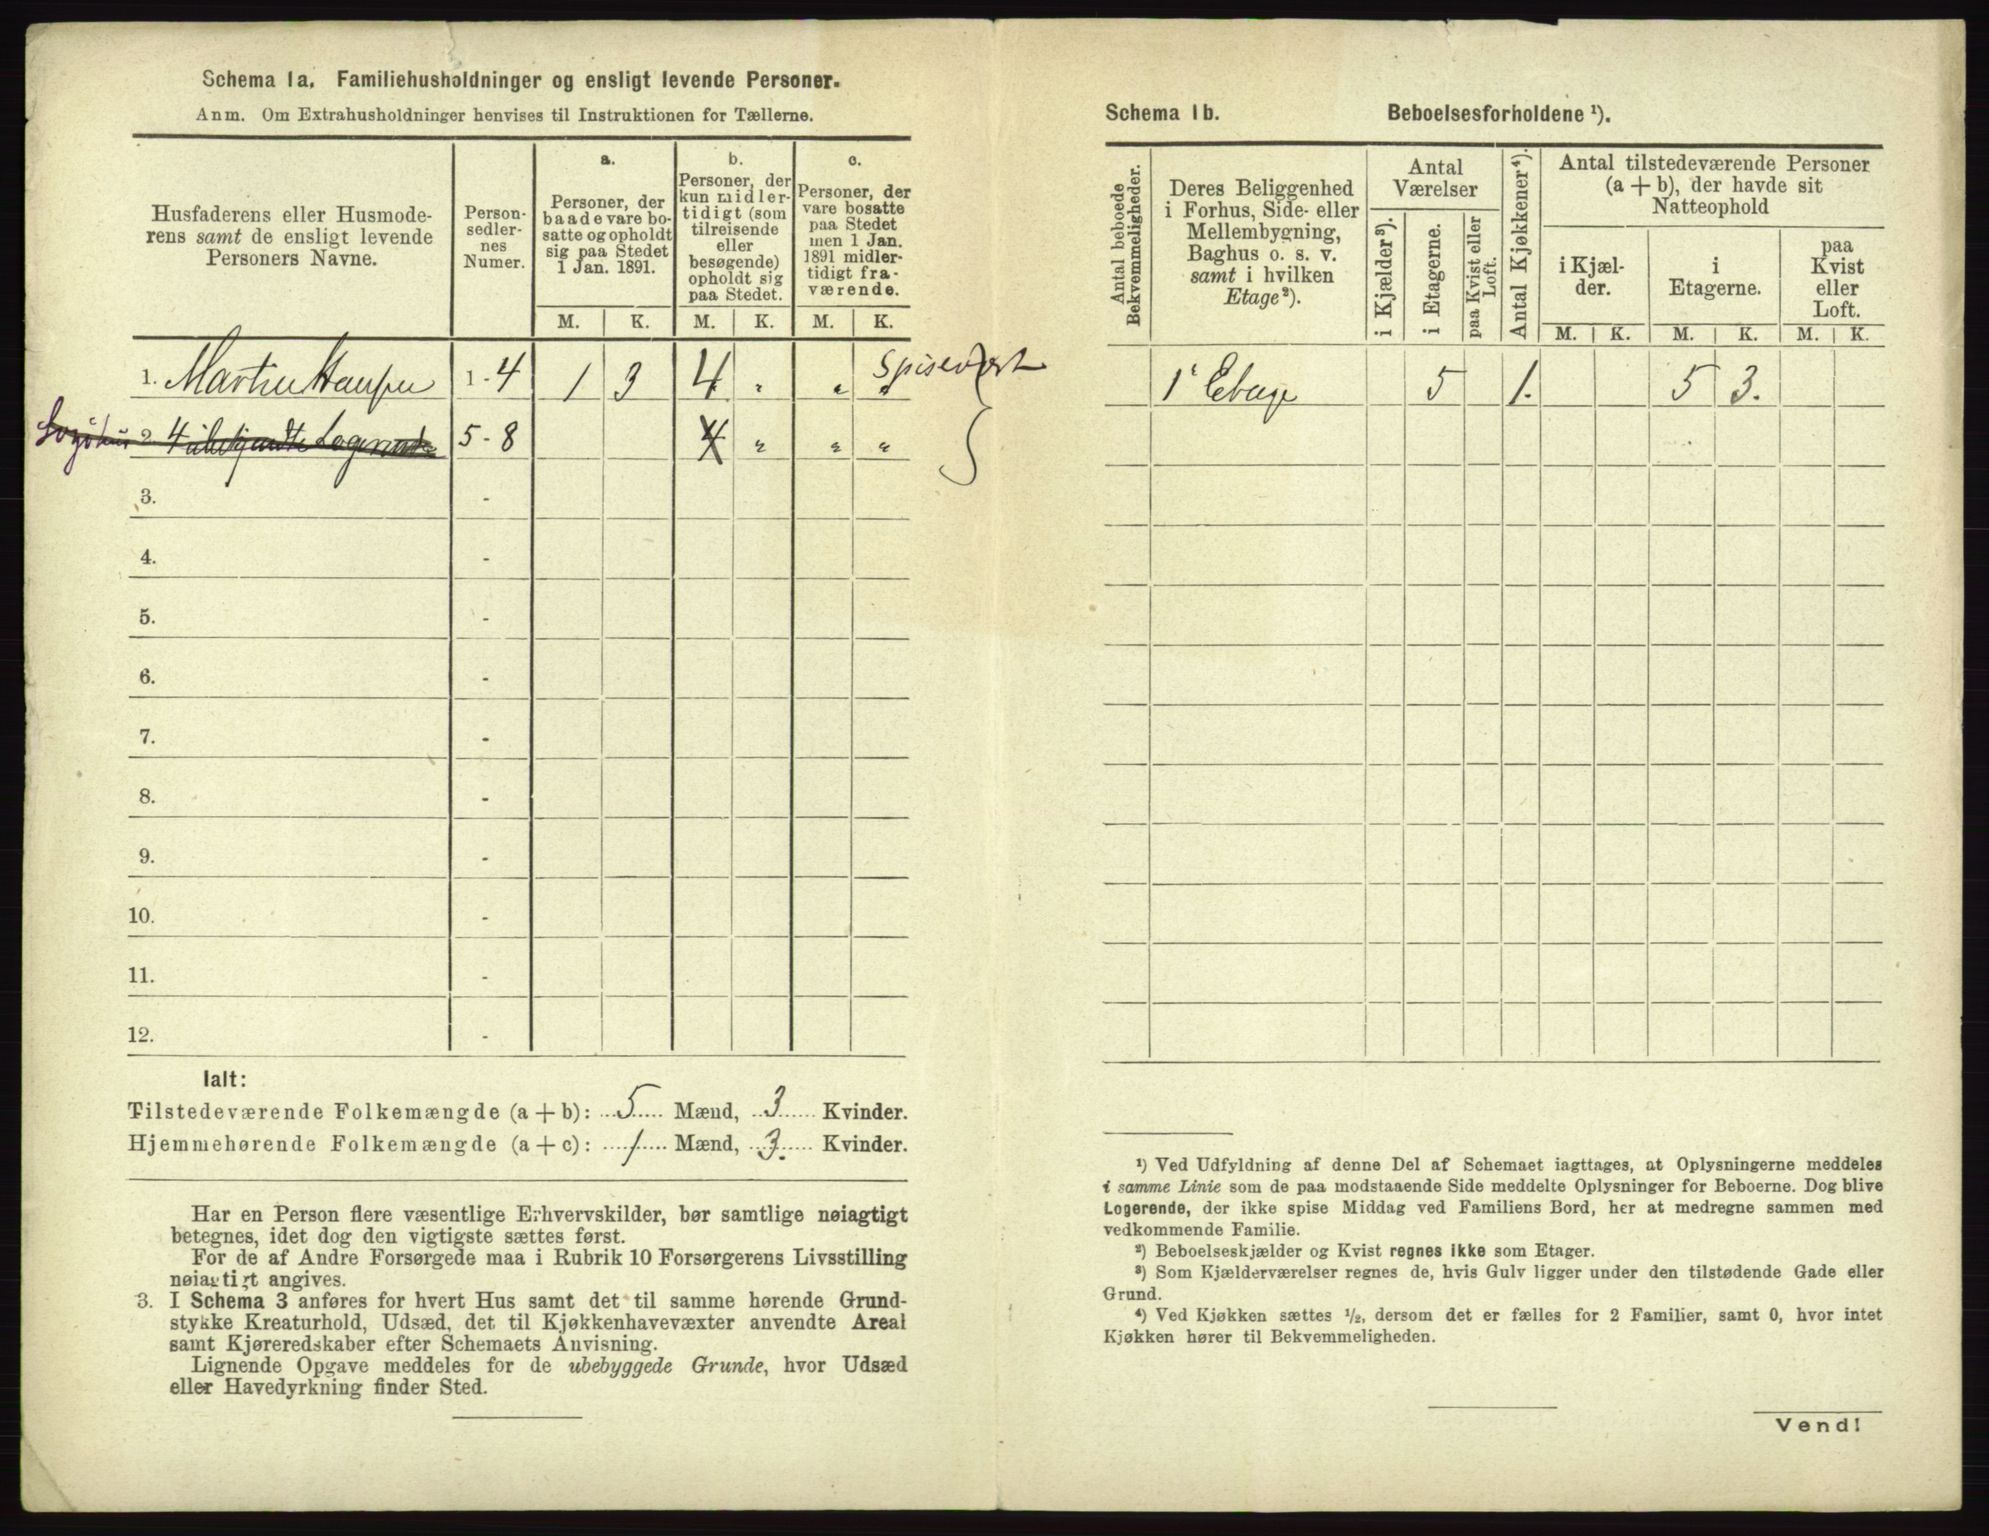 Schema 1a. Familiehusholdninger og ensligt levende Personer.
Anm. Om Extrahusholdninger henvises til Instruktionen for Tællerne.
Husfaderens eller Husmode-
rens samt de ensligt levende
Personers Navne.
Person-
sedler-
nes
Numer.
a.
Personer, der
baade vare bo-
satte og opholdt
sig paa Stedet
1 Jan. 1891.
b.
Personer, der
kun midler-
tidigt (som
tilreisende
eller
besøgende)
opholdt sig
paa Stedet.
c.
Personer, der
vare bosatte
paa Stedet
men 1 Jan.
1891 midler-
tidigt fra-
værende.
M. K. M. K. M. K.
1. Martin Hansen 1 - 4 1 3 4 " " " Spisevert
Logihus 2. 4 ubekjendte Logerende 5 - 8 4 " " "
3. -
4. -
5. -
6. -
7. -
8. -
9. -
10. -
11. -
12. -
Ialt:
Tilstedeværende Folkemængde (a + b): 5 Mænd, 3 Kvinder.
Hjemmehørende Folkemængde (a + c): 1 Mænd, 3. Kvinder.
Har en Person flere væsentlige Erhvervskilder, bør samtlige nøiagtigt
betegnes, idet dog den vigtigste sættes først.
For de af Andre Forsørgede maa i Rubrik 10 Forsørgerens Livsstilling
nøiagtigt angives.
3. I Schema 3 anføres for hvert Hus samt det til samme hørende Grund-
stykke Kreaturhold, Udsæd, det til Kjøkkenhavevæxter anvendte Areal
samt Kjøreredskaber efter Schemaets Anvisning.
Lignende Opgave meddeles for de ubebyggede Grunde, hvor Udsæd
eller Havedyrkning finder Sted.
Schema 1b. Beboelsesforholdene ¹).
Antal beboede
Bekvemmeligheder.
Deres Beliggenhed
i Forhus, Side- eller
Mellembygning,
Baghus o. s. v.
samt i hvilken
Etage²).
Antal
Værelser
i Kjælder³).
i Etagerne.
paa Kvist eller
Loft.
Antal Kjøkkener⁴).
Antal tilstedeværende Personer
(a + b), der havde sit
Natteophold
i Kjæl-
der.
i
Etagerne.
paa
Kvist
eller
Loft.
M. K. M. K. M. K.
1' Etage 5 1. 5 3.
¹) Ved Udfyldning af denne Del af Schemaet iagttages, at Oplysningerne meddeles
i samme Linie som de paa modstaaende Side meddelte Oplysninger for Beboerne. Dog blive
Logerende, der ikke spise Middag ved Familiens Bord, her at medregne sammen med
vedkommende Familie.
²) Beboelseskjælder og Kvist regnes ikke som Etager.
³) Som Kjælderværelser regnes de, hvis Gulv ligger under den tilstødende Gade eller
Grund.
⁴) Ved Kjøkken sættes ½, dersom det er fælles for 2 Familier, samt 0, hvor intet
Kjøkken hører til Bekvemmeligheden.
Vend!